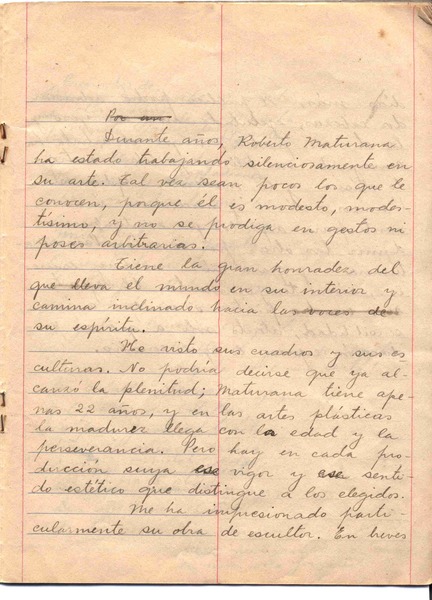 Por un
Durante años, Roberto Maturana
ha estado trabajando silenciosamente en
su arte. Tal vez sean pocos los que le
conocen, porque él es modesto, modes-
tísimo, y no se prodiga en gestos ni
poses arbitrarias.
Tiene la gran honradez del
que lleva el mundo en su interior y
camina inclinado hacia las voces de
su espíritu.
He visto sus cuadros y sus es
culturas. No podría decirse que ya al-
canzó la plenitud; Maturana tiene ape-
nas 22 años, y en las artes plásticas
la madurez llega con la edad y la
perseverancia. Pero hay en cada pro-
ducción suya ese vigor y ese senti-
do estético que distingue a los elegidos.
Me ha impresionado parti-
cularmente su obra de escultor. En breves